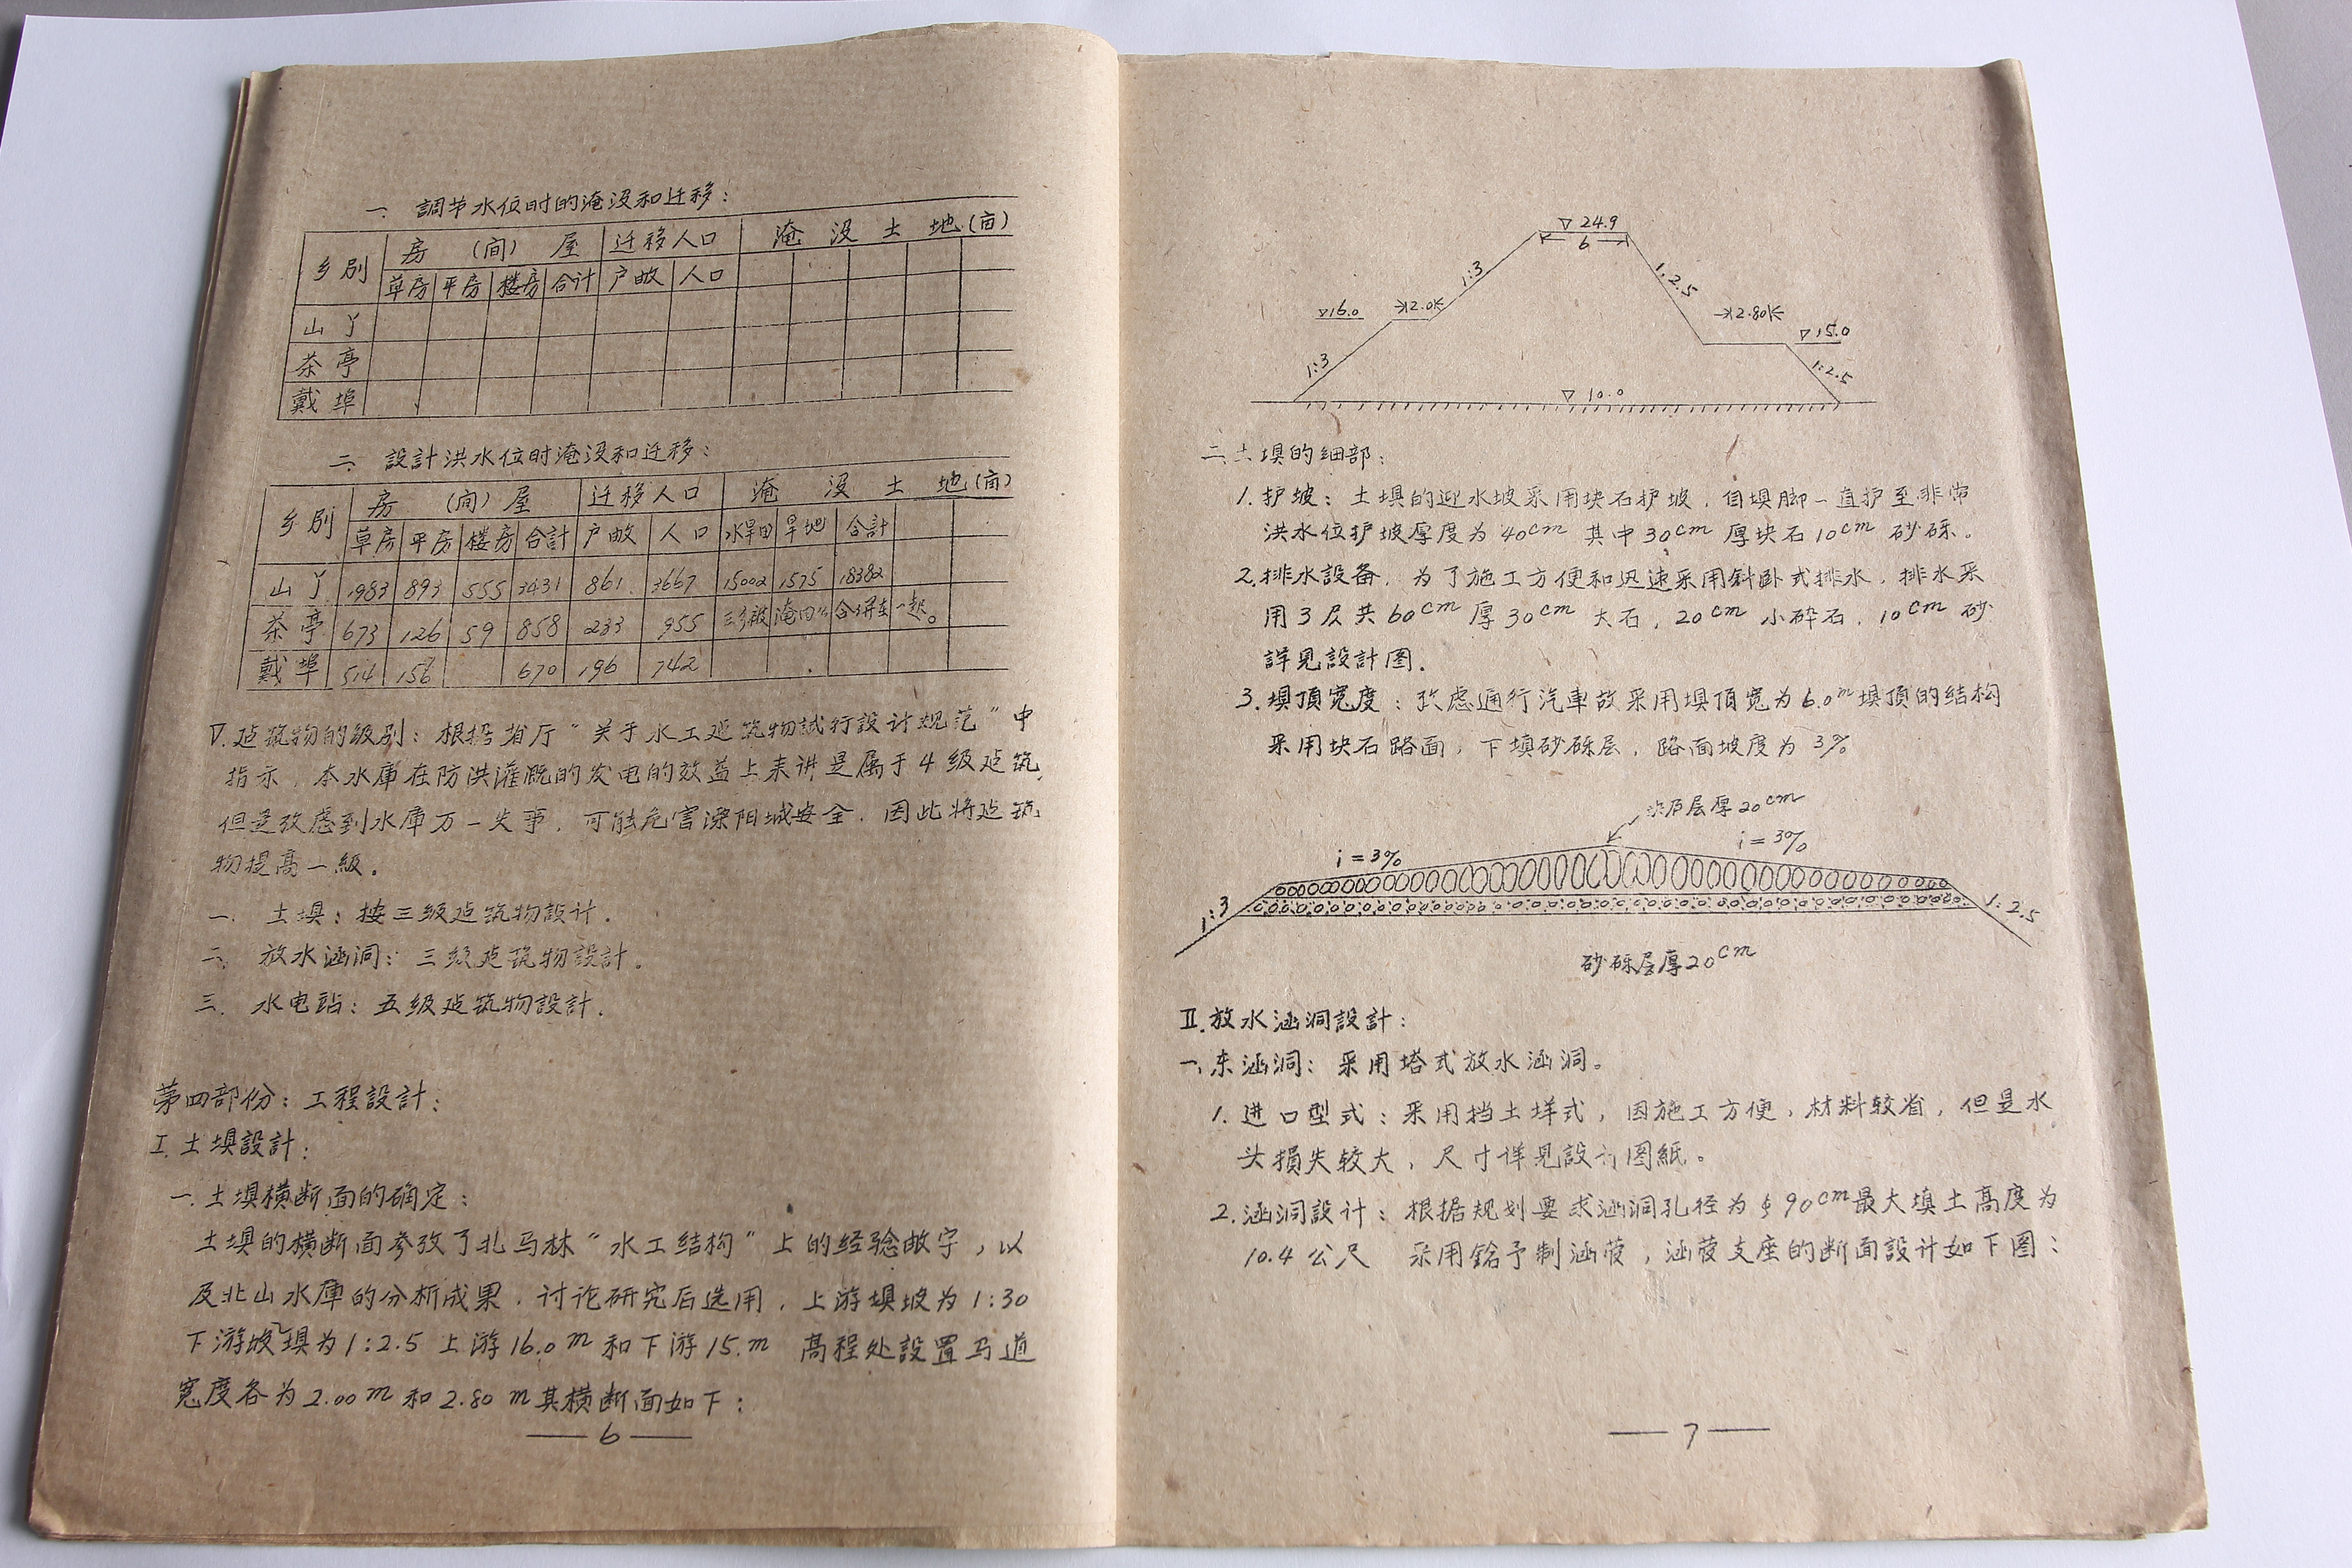 一. 調节水位时的淹没和迁移:
乡別 房 (间) 屋 迁移人口 淹 没 土 地(亩)
草房 平房 楼房 合计 户数 人口
山丫
茶亭
戴埠
二. 設計洪水位时淹没和迁移:
乡別 房 (间) 屋 迁移人口 淹 没 土 地(亩)
草房 平房 楼房 合計 户数 人口 水旱田 旱地 合計
山丫 1983 893 555 3431 861 3667 15002 1575 18382
茶亭 673 126 59 858 233 955 三乡被淹田 合併在一起。
戴埠 514 156 670 196 742
Ⅴ. 建筑物的级别: 根据省厅“关于水工建筑物試行設计规范”中
指示, 本水庫在防洪灌溉的发电的效益上来讲是属于4级建筑,
但是攷虑到水庫万一失事, 可能危害溧阳城安全. 因此将建筑
物提高一級.
一. 土埧: 按三级建筑物設计.
二. 放水涵洞: 三级建筑物設計.
三. 水电站: 五级建筑物設計.
第四部份: 工程設計:
Ⅰ. 土埧設計:
一. 土埧横断面的确定:
土埧的横断面参攷了扎马林“水工结构”上的经驗数字, 以
及北山水庫的分析成果. 讨论研究后选用, 上游埧坡为1:30
下游坡埧为1:2.5 上游16.0m和下游15.m 高程处設置马道
宽度各为2.00m和2.80m其横断面如下:
— 6 —
▽24.9
6
1:3
1:2.5
▽16.0
2.0
2.80
▽15.0
1:3
1:2.5
▽10.0
二. 土埧的细部:
1. 护坡: 土埧的迎水坡采用块石护坡, 自埧脚一直护至非常
洪水位护坡厚度为40cm 其中30cm厚块石10cm砂砾。
2. 排水設备, 为了施工方便和迅速采用斜卧式排水, 排水采
用3层共60cm厚30cm大石, 20cm小碎石, 10cm砂
詳見設計图.
3. 埧頂宽度: 攷虑通行汽車故采用埧頂宽为6.0m埧頂的结构
采用块石路面, 下填砂砾层, 路面坡度为3%
块石层厚20cm
i=3%
i=3%
1:3
1:2.5
砂砾层厚20cm
Ⅱ. 放水涵洞設計:
一. 东涵洞: 采用塔式放水涵洞。
1. 进口型式: 采用挡土垟式, 因施工方便, 材料较省, 但是水
头損失较大, 尺寸详見設计图紙。
2. 涵洞設计: 根据规划要求涵洞孔径为φ90cm最大填土高度为
10.4公尺 采用 予制涵管, 涵管支座的断面設计如下图:
— 7 —